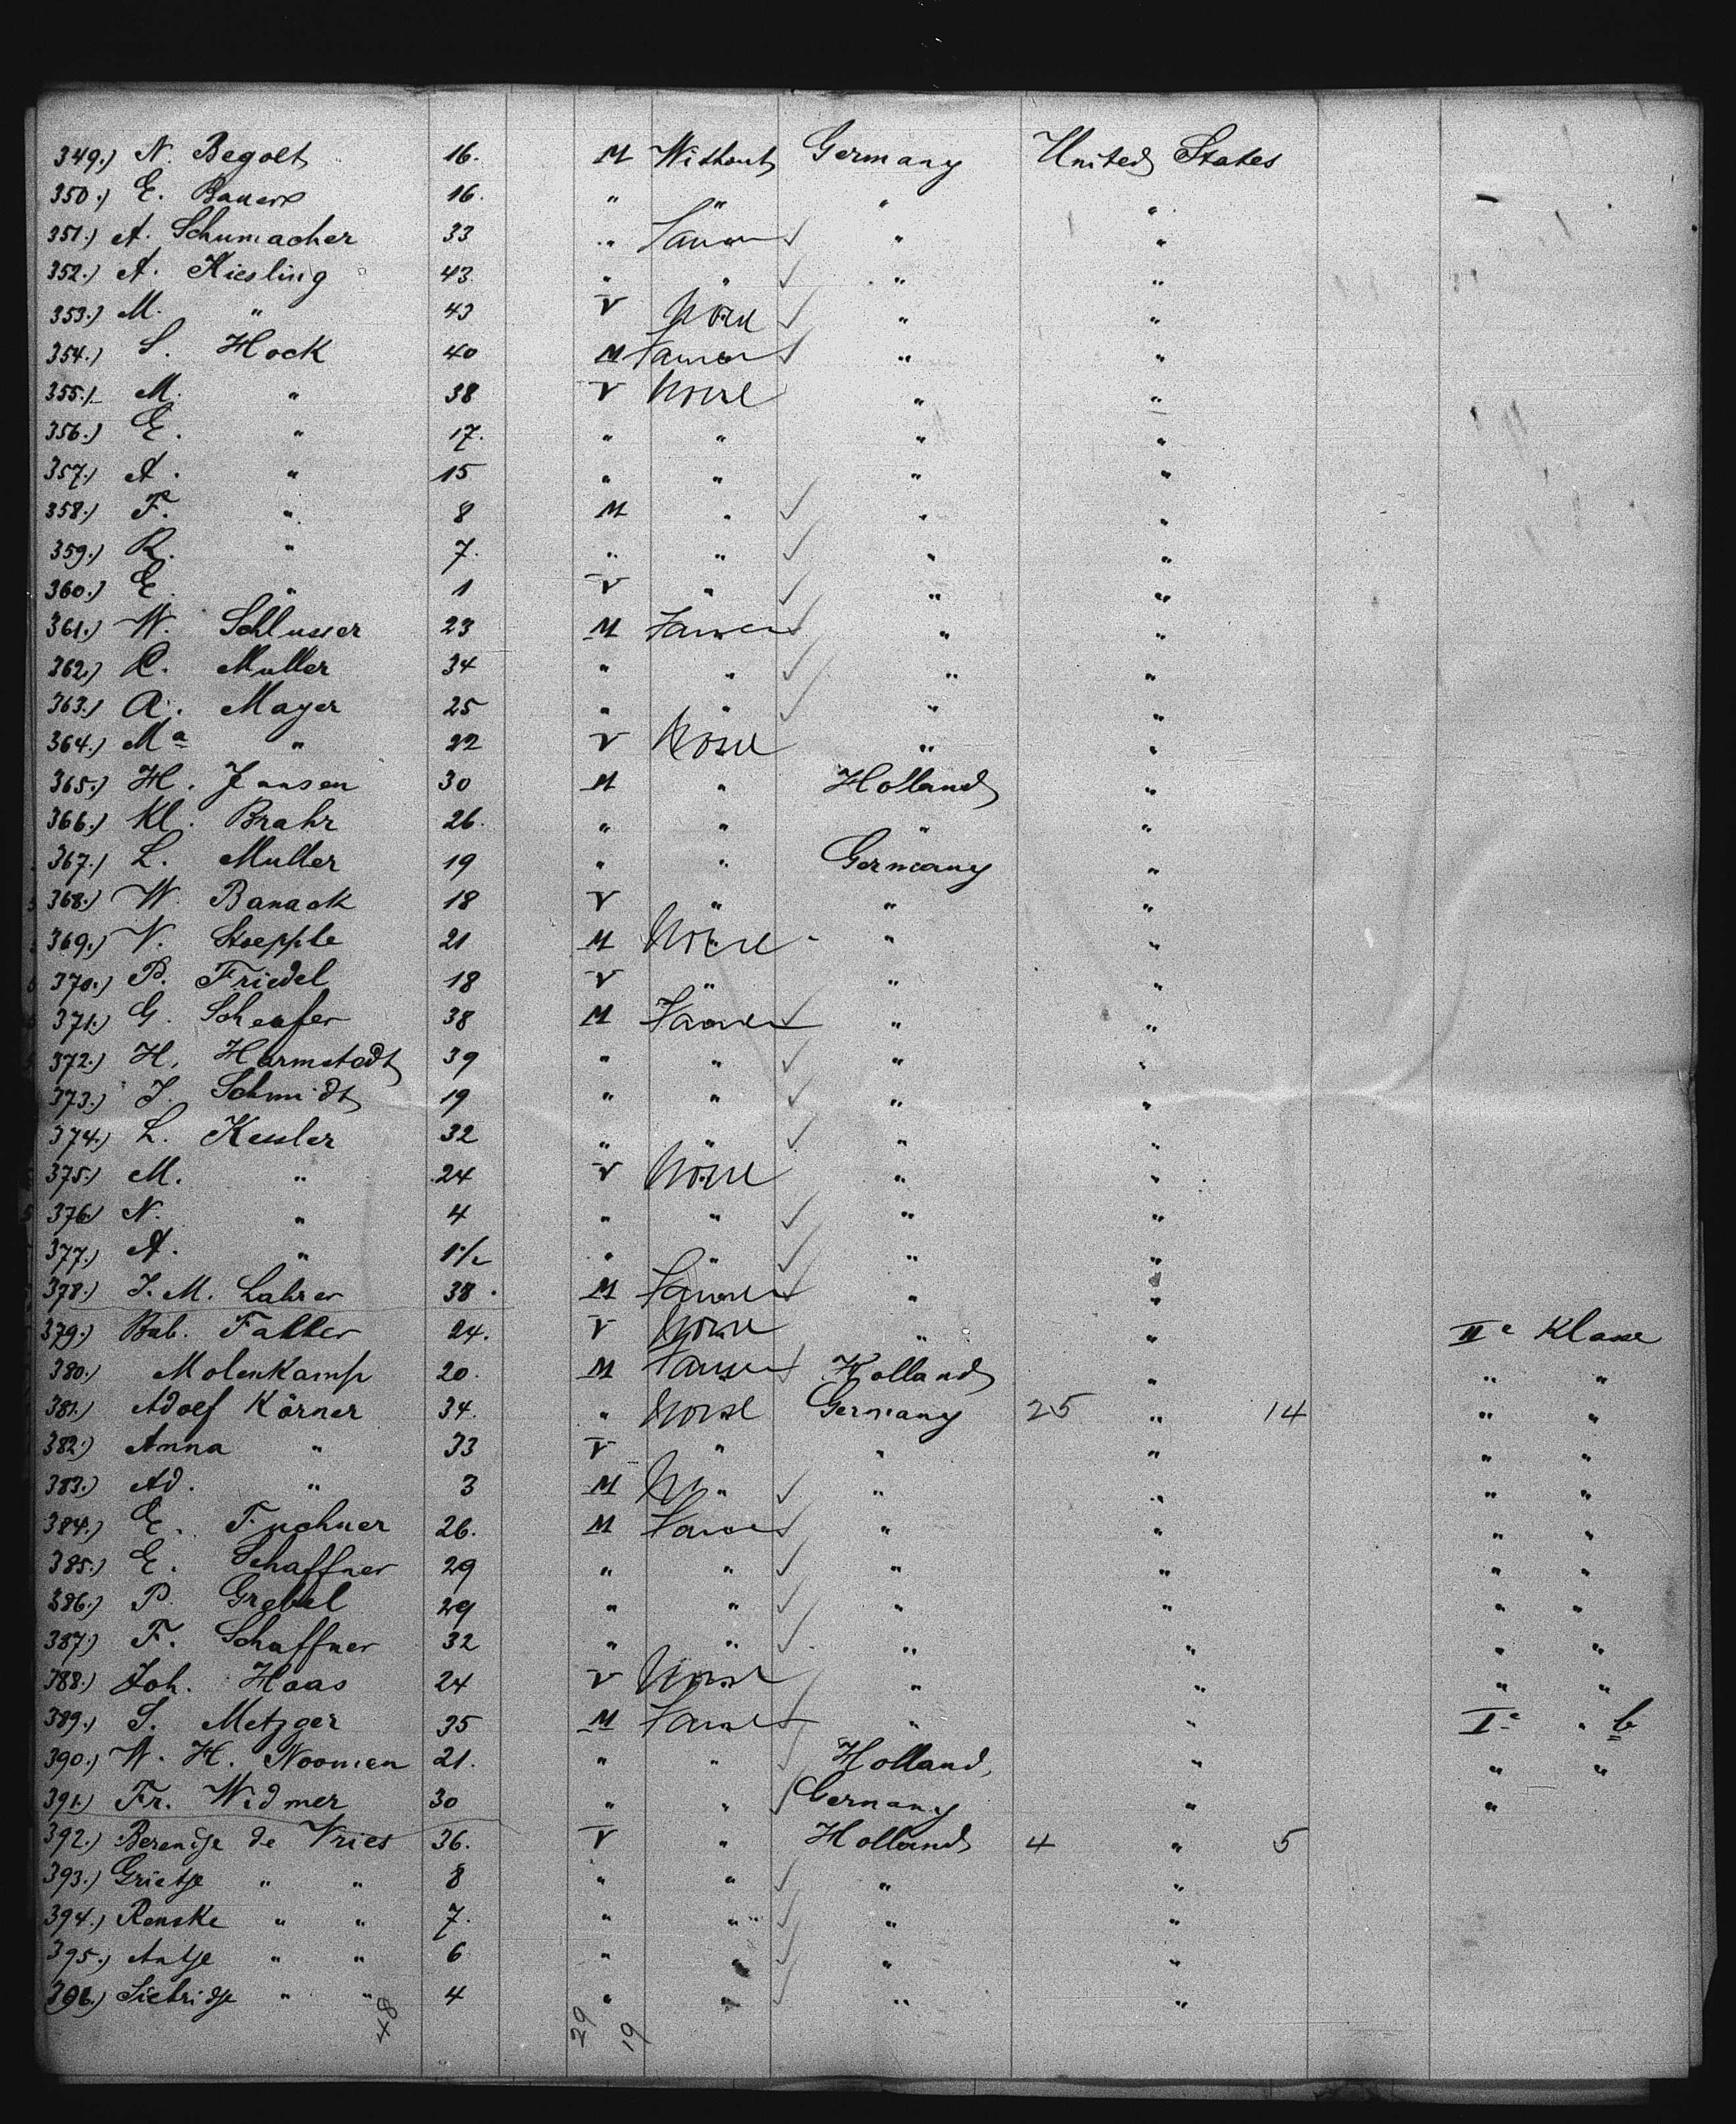 349.) N. Begolt 16. M Without Germany United States
350.) E. Bauer 16. " " " "
351.) A. Schumacher 33 " Farmer " "
352.) A. Kiesling 43 " " " "
353.) M. " 43 V None " "
354.) S. Hock 40 M Farmer " "
355.) M. " 38 V None " "
356.) E. " 17. " " " "
357.) A. " 15 " " " "
358.) F. " 8 M " " "
359.) R. " 7. " " " "
360.) E. " 1 V " " "
361.) W. Schlusser 23 M Farmer " "
362.) C. Muller 34 " " " "
363.) A. Mayer 25 " " " "
364.) Ma " 22 V None " "
365.) H. Jansen 30 M " Holland "
366.) Kl. Brahr 26. " " " "
367.) L. Muller 19 " " Germany "
368.) W. Banack 18 V " " "
369.) V. Stoepple 21 M None " "
370.) P. Friedel 18 V " " "
371.) G. Schenfer 38 M Farmer " "
372.) H. Harmstadt 39 " " " "
373.) J. Schmidt 19 " " " "
374.) L. Kessler 32 " " " "
375.) M. " 24 V None " "
376.) N. " 4 " " " "
377.) A. " 1 1/2 " " " "
378.) J. M. Lahrer 38. M Farmer " "
379.) Bab. Faller 24. V None " " IIe Klasse
380.) Molenkamp 20. M Farmer Holland " " "
381.) Adolf Körner 34. " None Germany 25 " 14 " "
382.) Anna " 33 V " " " " "
383.) Ad. " 3 M " " " " "
384.) E. Fuchner 26. M Farmer " " " "
385.) E. Schaffner 29 " " " " " "
386.) P. Grebel 29 " " " " " "
387.) F. Schaffner 32 " " " " " "
388.) Joh. Haas 24 V None " " " "
389.) S. Metzger 35 M Farmer " " Ie " b
390.) W. H. Noomen 21. " " Holland " " "
391.) Fr. Widmer 30 " " Germany " "
392.) Berendje de Vries 36. V " Holland 4 " 5
393.) Grietje " " 8 " " " "
394.) Renske " " 7. " " " "
395.) Antje " " 6 " " " "
396.) Sietridje " " 4 " " " "
48 29 19